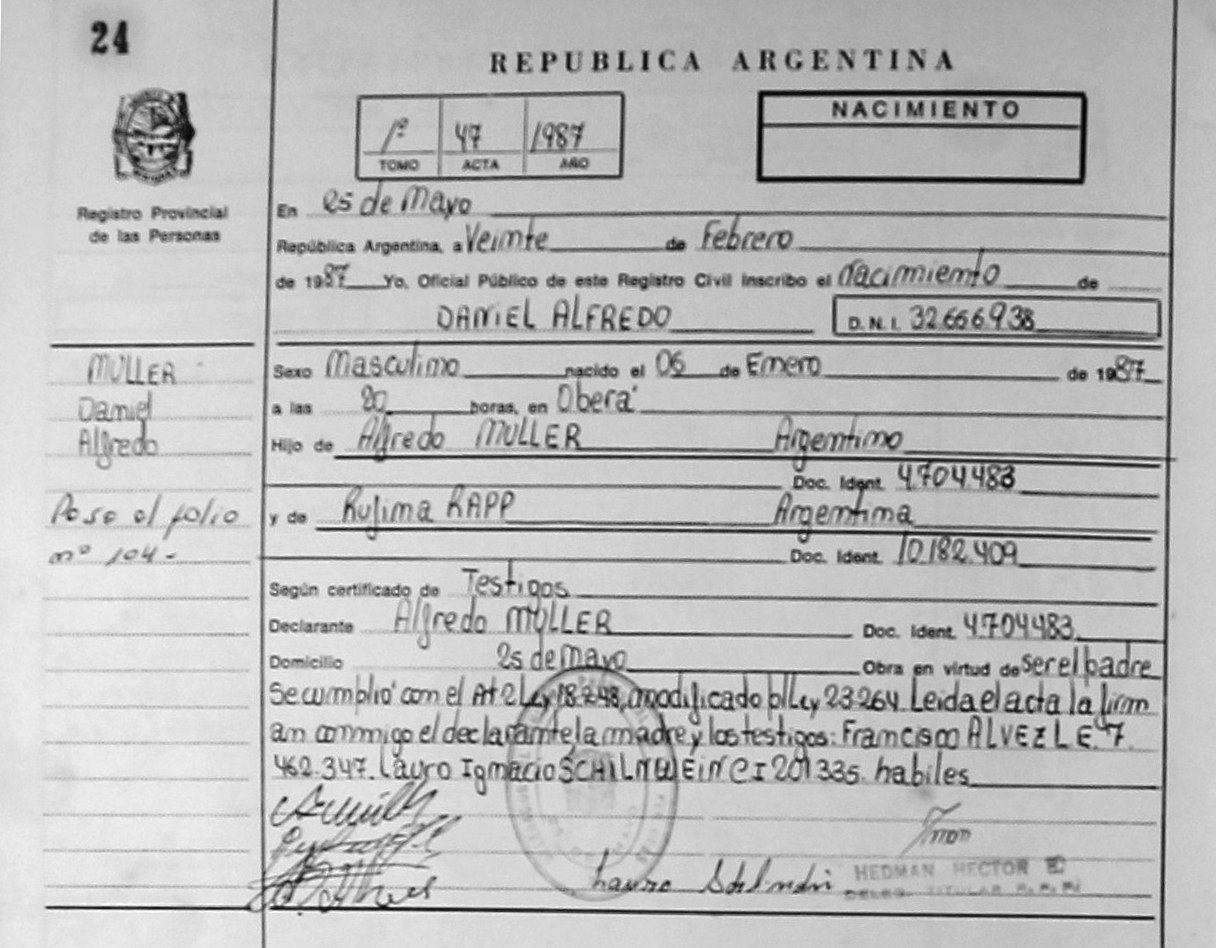 24
REPUBLICA ARGENTINA
1º 47 1987
TOMO ACTA AÑO
NACIMIENTO
Registro Provincial
de las Personas
En 25 de Mayo
República Argentina, a Veinte de Febrero
de 1987 Yo, Oficial Público de este Registro Civil inscribo el Nacimiento de
DANIEL ALFREDO D.N.I. 32.666.938
MULLER
Daniel
Alfredo
Paso al folio
nº 104-
Sexo Masculino nacido el 06 de Enero de 1987
a las 20 horas, en Oberá
Hijo de Alfredo MULLER Argentino
Doc. Ident. 4.704.483
y de Rufina RAPP Argentina
Doc. Ident. 10.182.409
Según certificado de Testigos
Declarante Alfredo MULLER Doc. Ident. 4.704.483
Domicilio 25 de Mayo Obra en virtud de ser el padre
Se cumplió con el At 2 Ley 18.248, modificado p/Ley 23.264. Leida el acta la firm
an conmigo el declarante, la madre y los testigos: Francisco ALVEZ L E. 7.
462.347. Lauro Ignacio SCHILNWEIN C I 201335. habiles
HEDMAN HECTOR E.
TITULAR